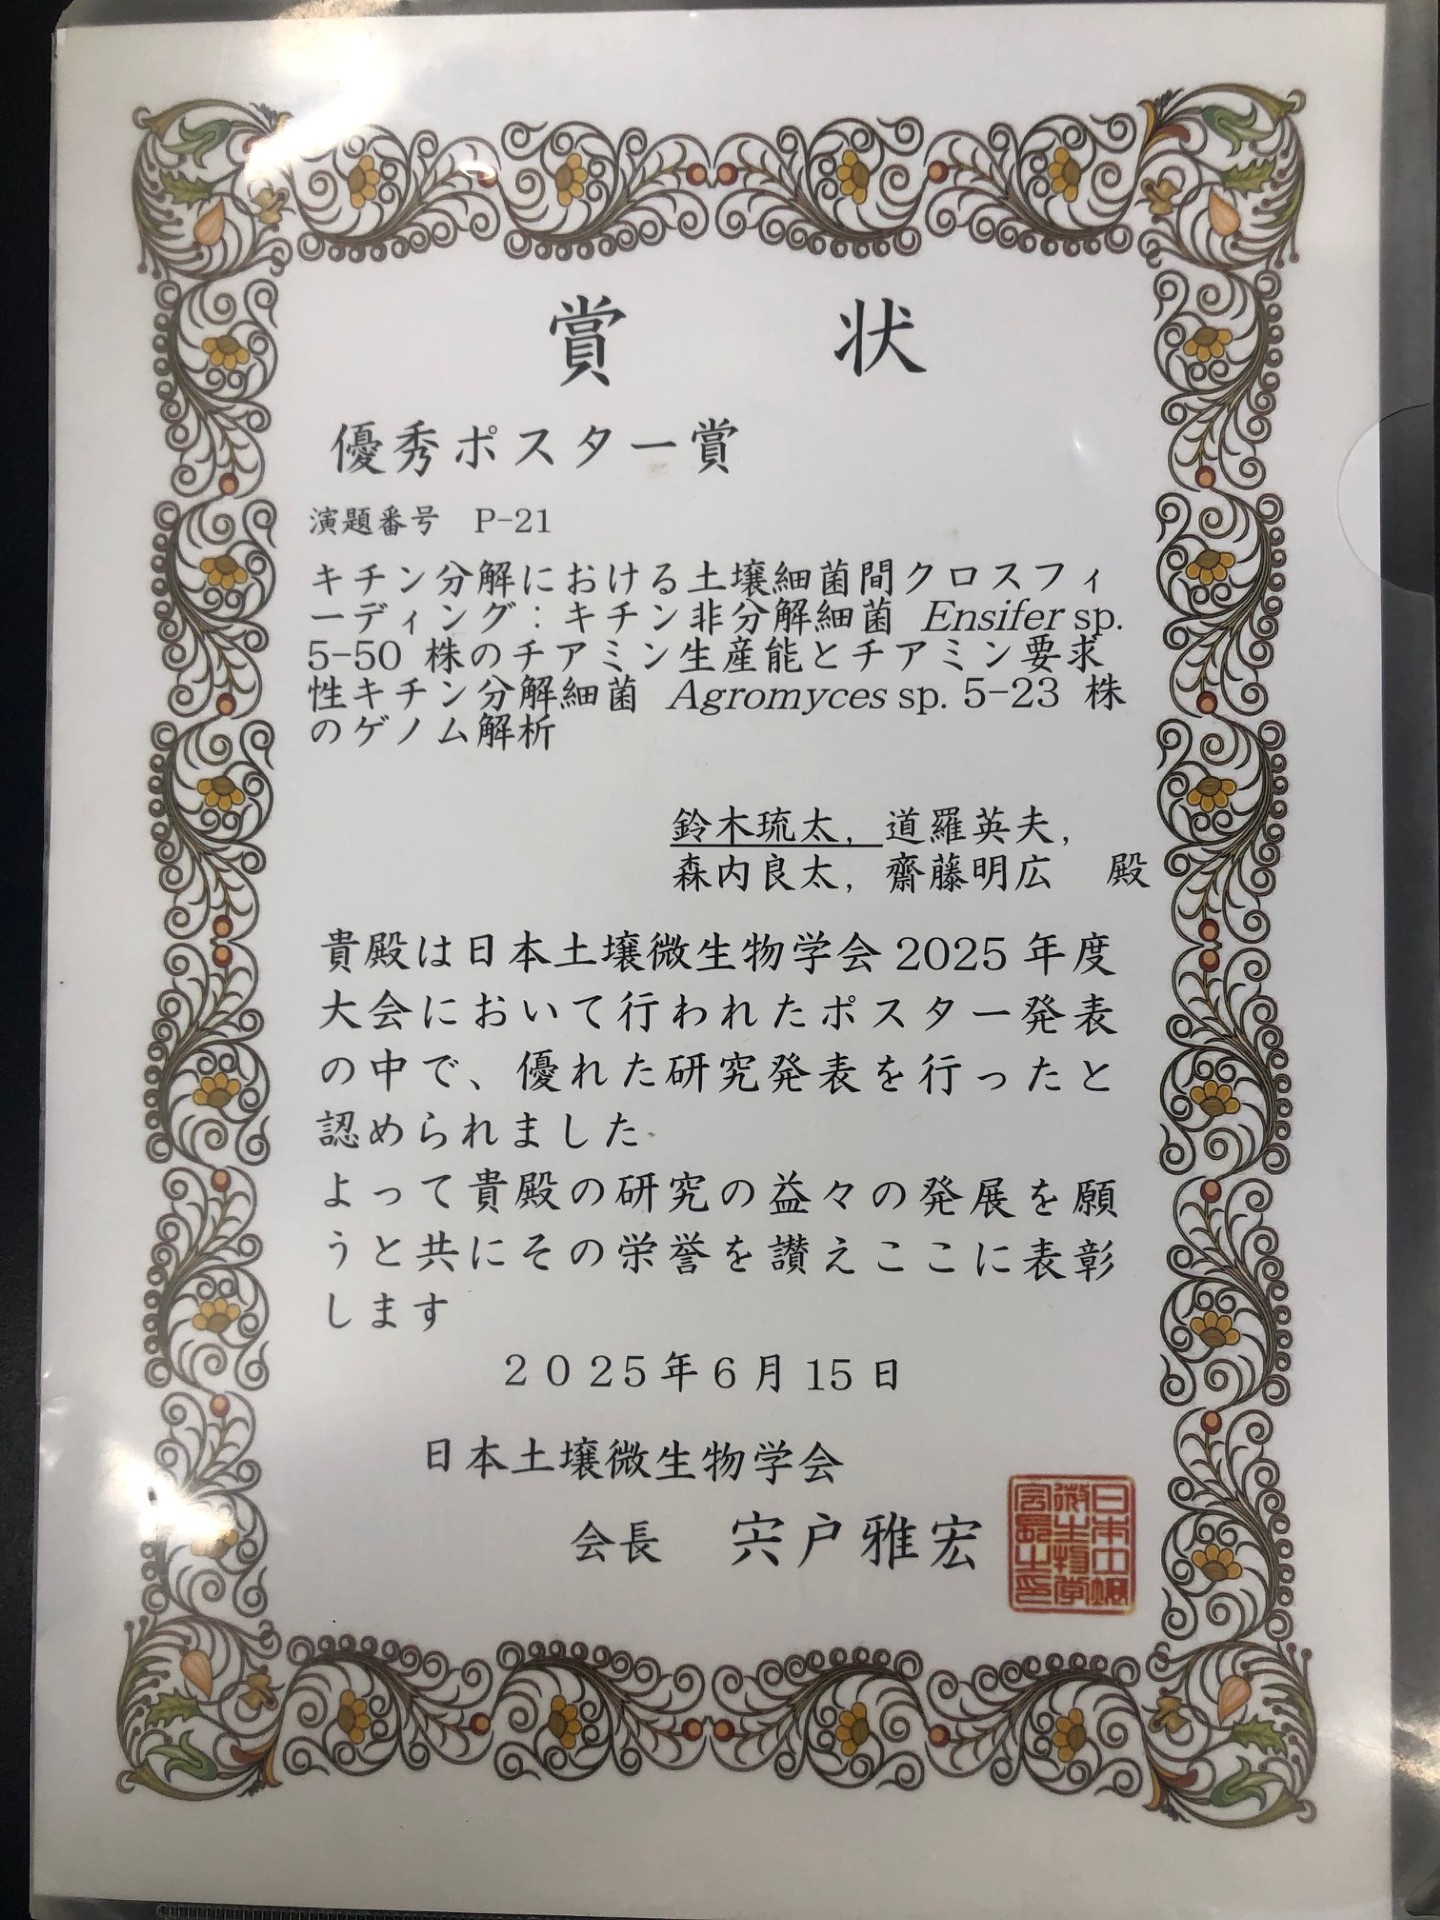 賞　状
優秀ポスター賞
演題番号　P-21
キチン分解における土壌細菌間クロスフィ
ーディング：キチン非分解細菌 Ensifer sp.
5-50 株のチアミン生産能とチアミン要求
性キチン分解細菌 Agromyces sp. 5-23 株
のゲノム解析
鈴木琉太, 道羅英夫,
森内良太, 齋藤明広　殿
貴殿は日本土壌微生物学会2025年度
大会において行われたポスター発表
の中で、優れた研究発表を行ったと
認められました
よって貴殿の研究の益々の発展を願
うと共にその栄誉を讃えここに表彰
します
２０２５年６月15日
日本土壌微生物学会
会長　宍戸雅宏
日本土壌
微生物学
会長之印